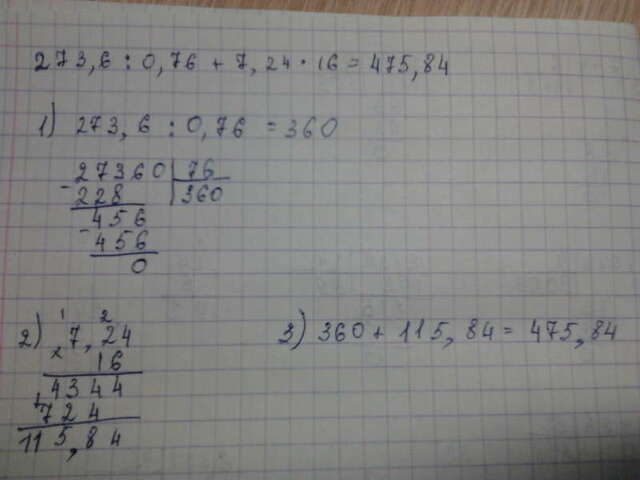 273,6 : 0,76 + 7,24 · 16 = 475,84
1) 273,6 : 0,76 = 360
27360 | 76
- 228 | 360
- 456
456
0
2) 1 2
x 7,24
16
+ 4344
724
115,84
3) 360 + 115,84 = 475,84